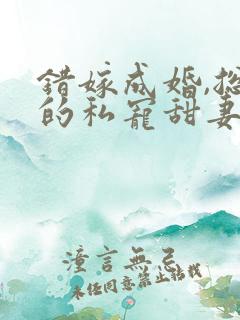 错嫁成婚,总
的私宠甜妻
潼言無忌
未经同意禁止转载